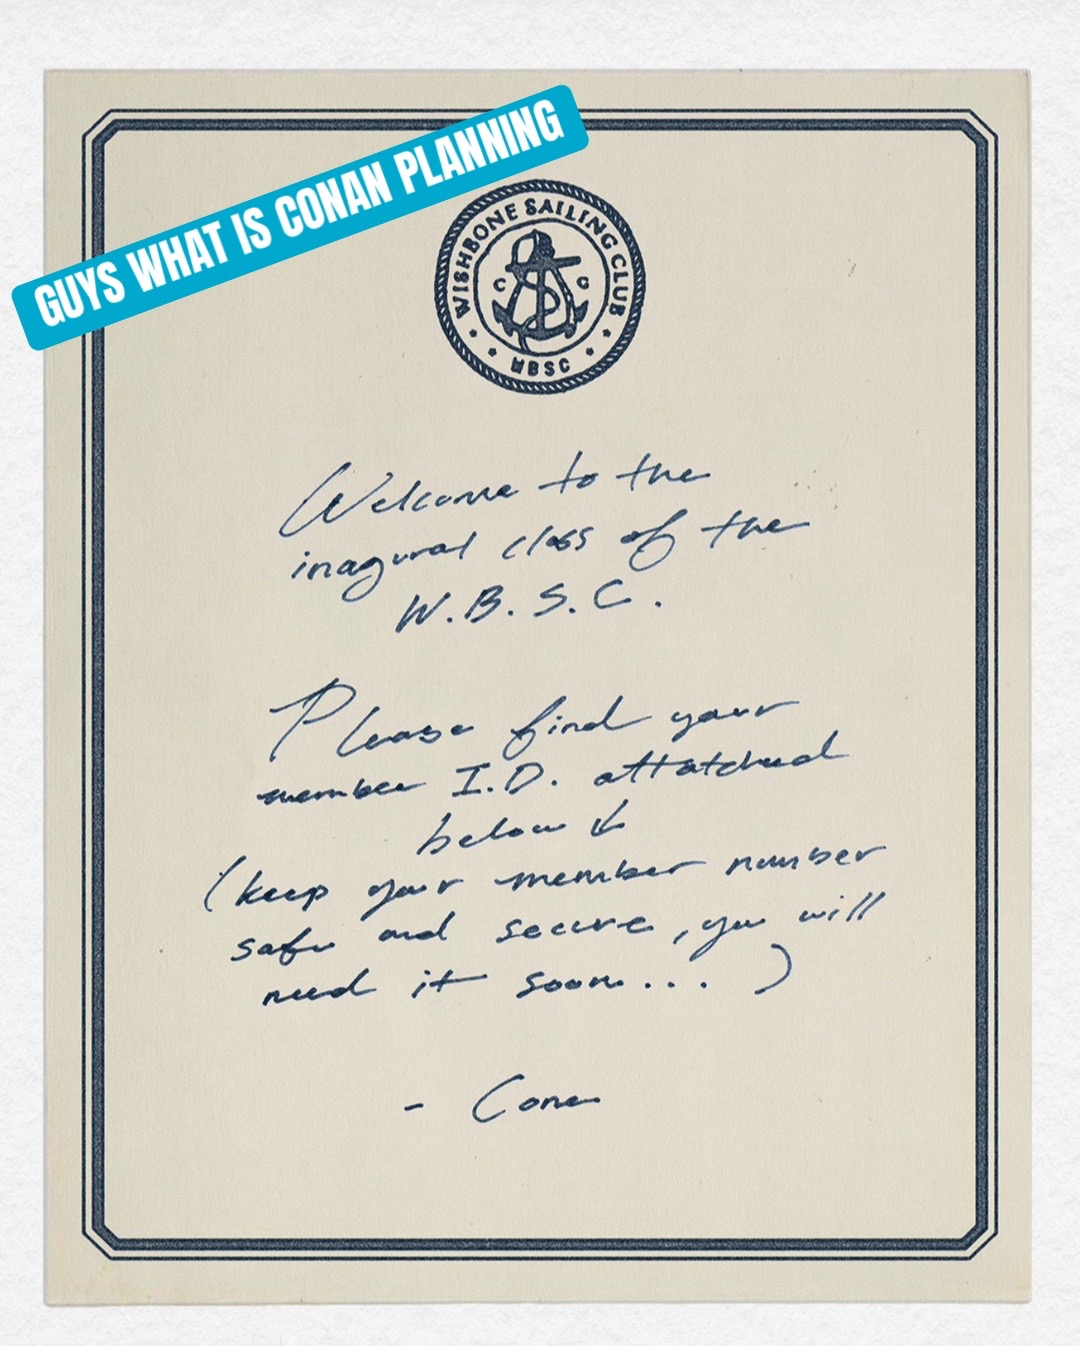 GUYS WHAT IS CONAN PLANNING
WISHBONE SAILING CLUB
C C
WBSC
Welcome to the
inagural class of the
W.B.S.C.
Please find your
member I.D. attatched
below ↓
(keep your member number
safe and secure, you will
need it soon... )
- Conan